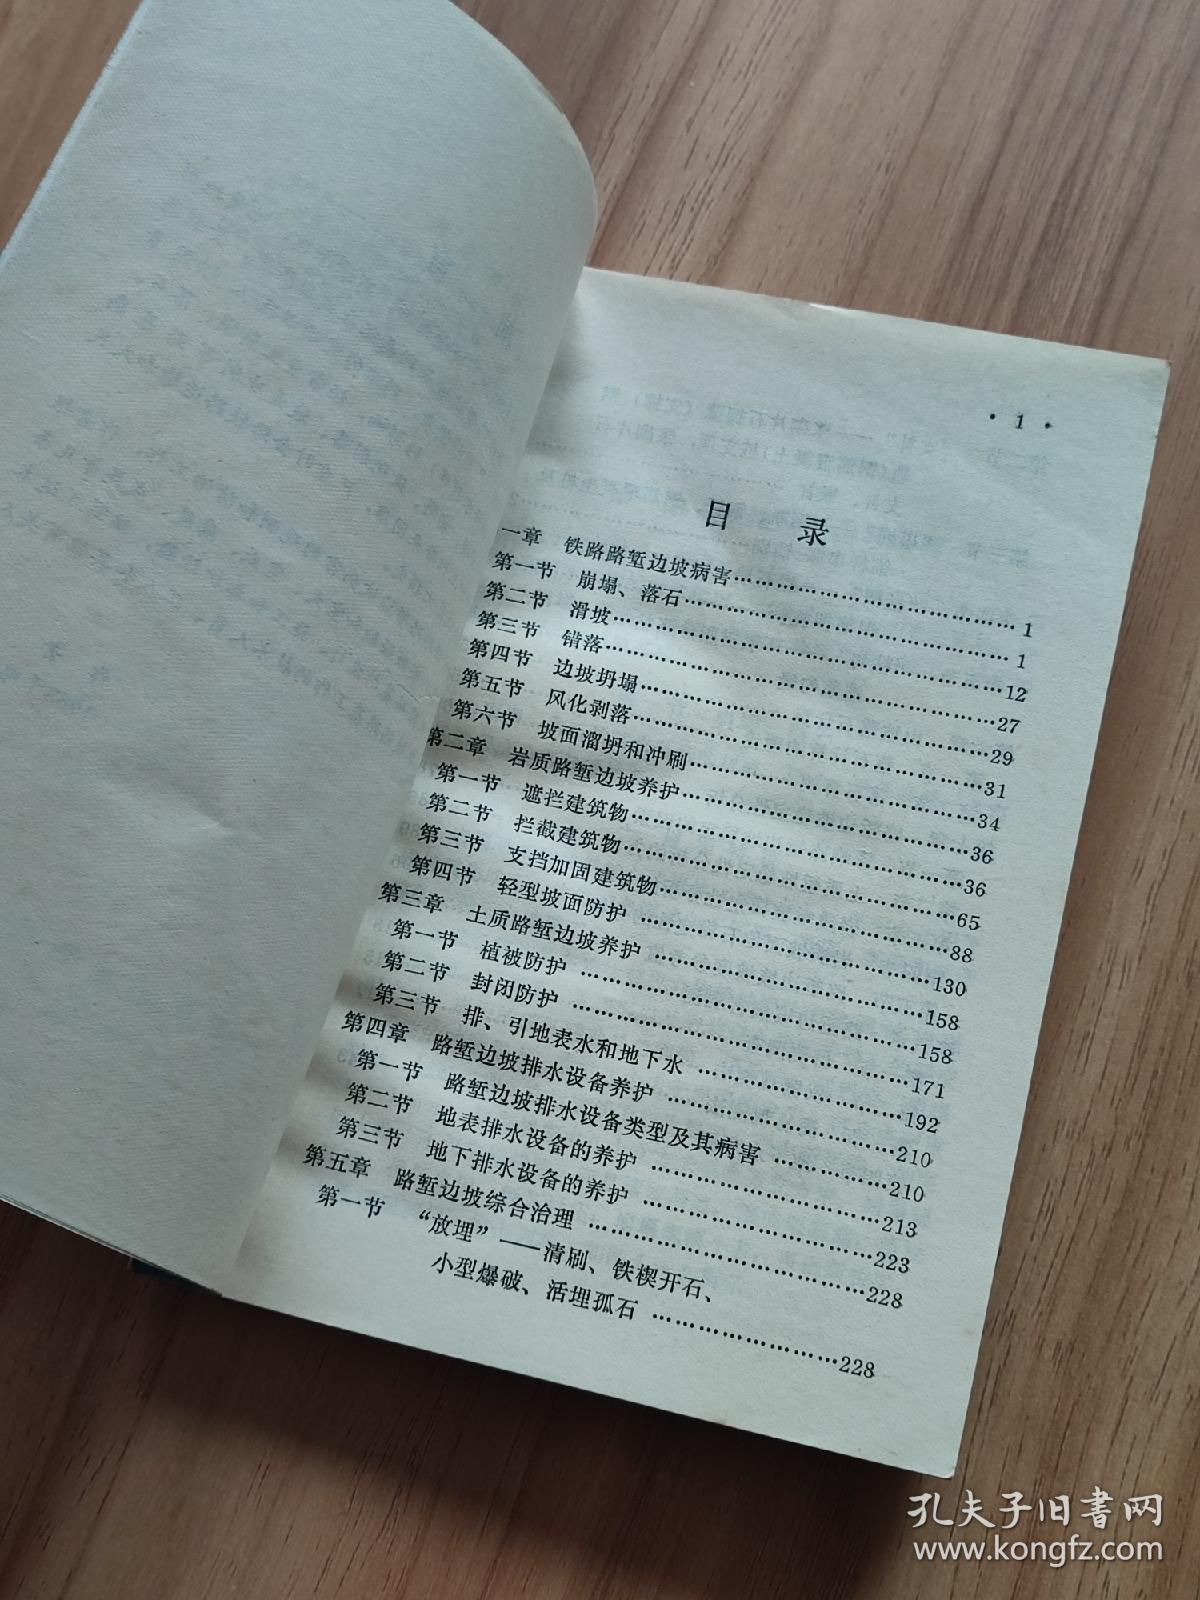 · 1 ·
目 录
一章 铁路路堑边坡病害……………………………1
第一节 崩塌、落石……………………………1
第二节 滑坡……………………………12
第三节 错落……………………………27
第四节 边坡坍塌……………………………29
第五节 风化剥落……………………………31
第六节 坡面溜坍和冲刷……………………………34
第二章 岩质路堑边坡养护……………………………36
第一节 遮拦建筑物……………………………36
第二节 拦截建筑物……………………………65
第三节 支挡加固建筑物……………………………88
第四节 轻型坡面防护……………………………130
第三章 土质路堑边坡养护……………………………158
第一节 植被防护……………………………158
第二节 封闭防护……………………………171
第三节 排、引地表水和地下水……………………………192
第四章 路堑边坡排水设备养护……………………………210
第一节 路堑边坡排水设备类型及其病害……………210
第二节 地表排水设备的养护……………………………213
第三节 地下排水设备的养护……………………………223
第五章 路堑边坡综合治理……………………………228
第一节 “放埋”——清刷、铁楔开石、
小型爆破、活埋孤石……………………228
孔夫子旧书网
www.kongfz.com